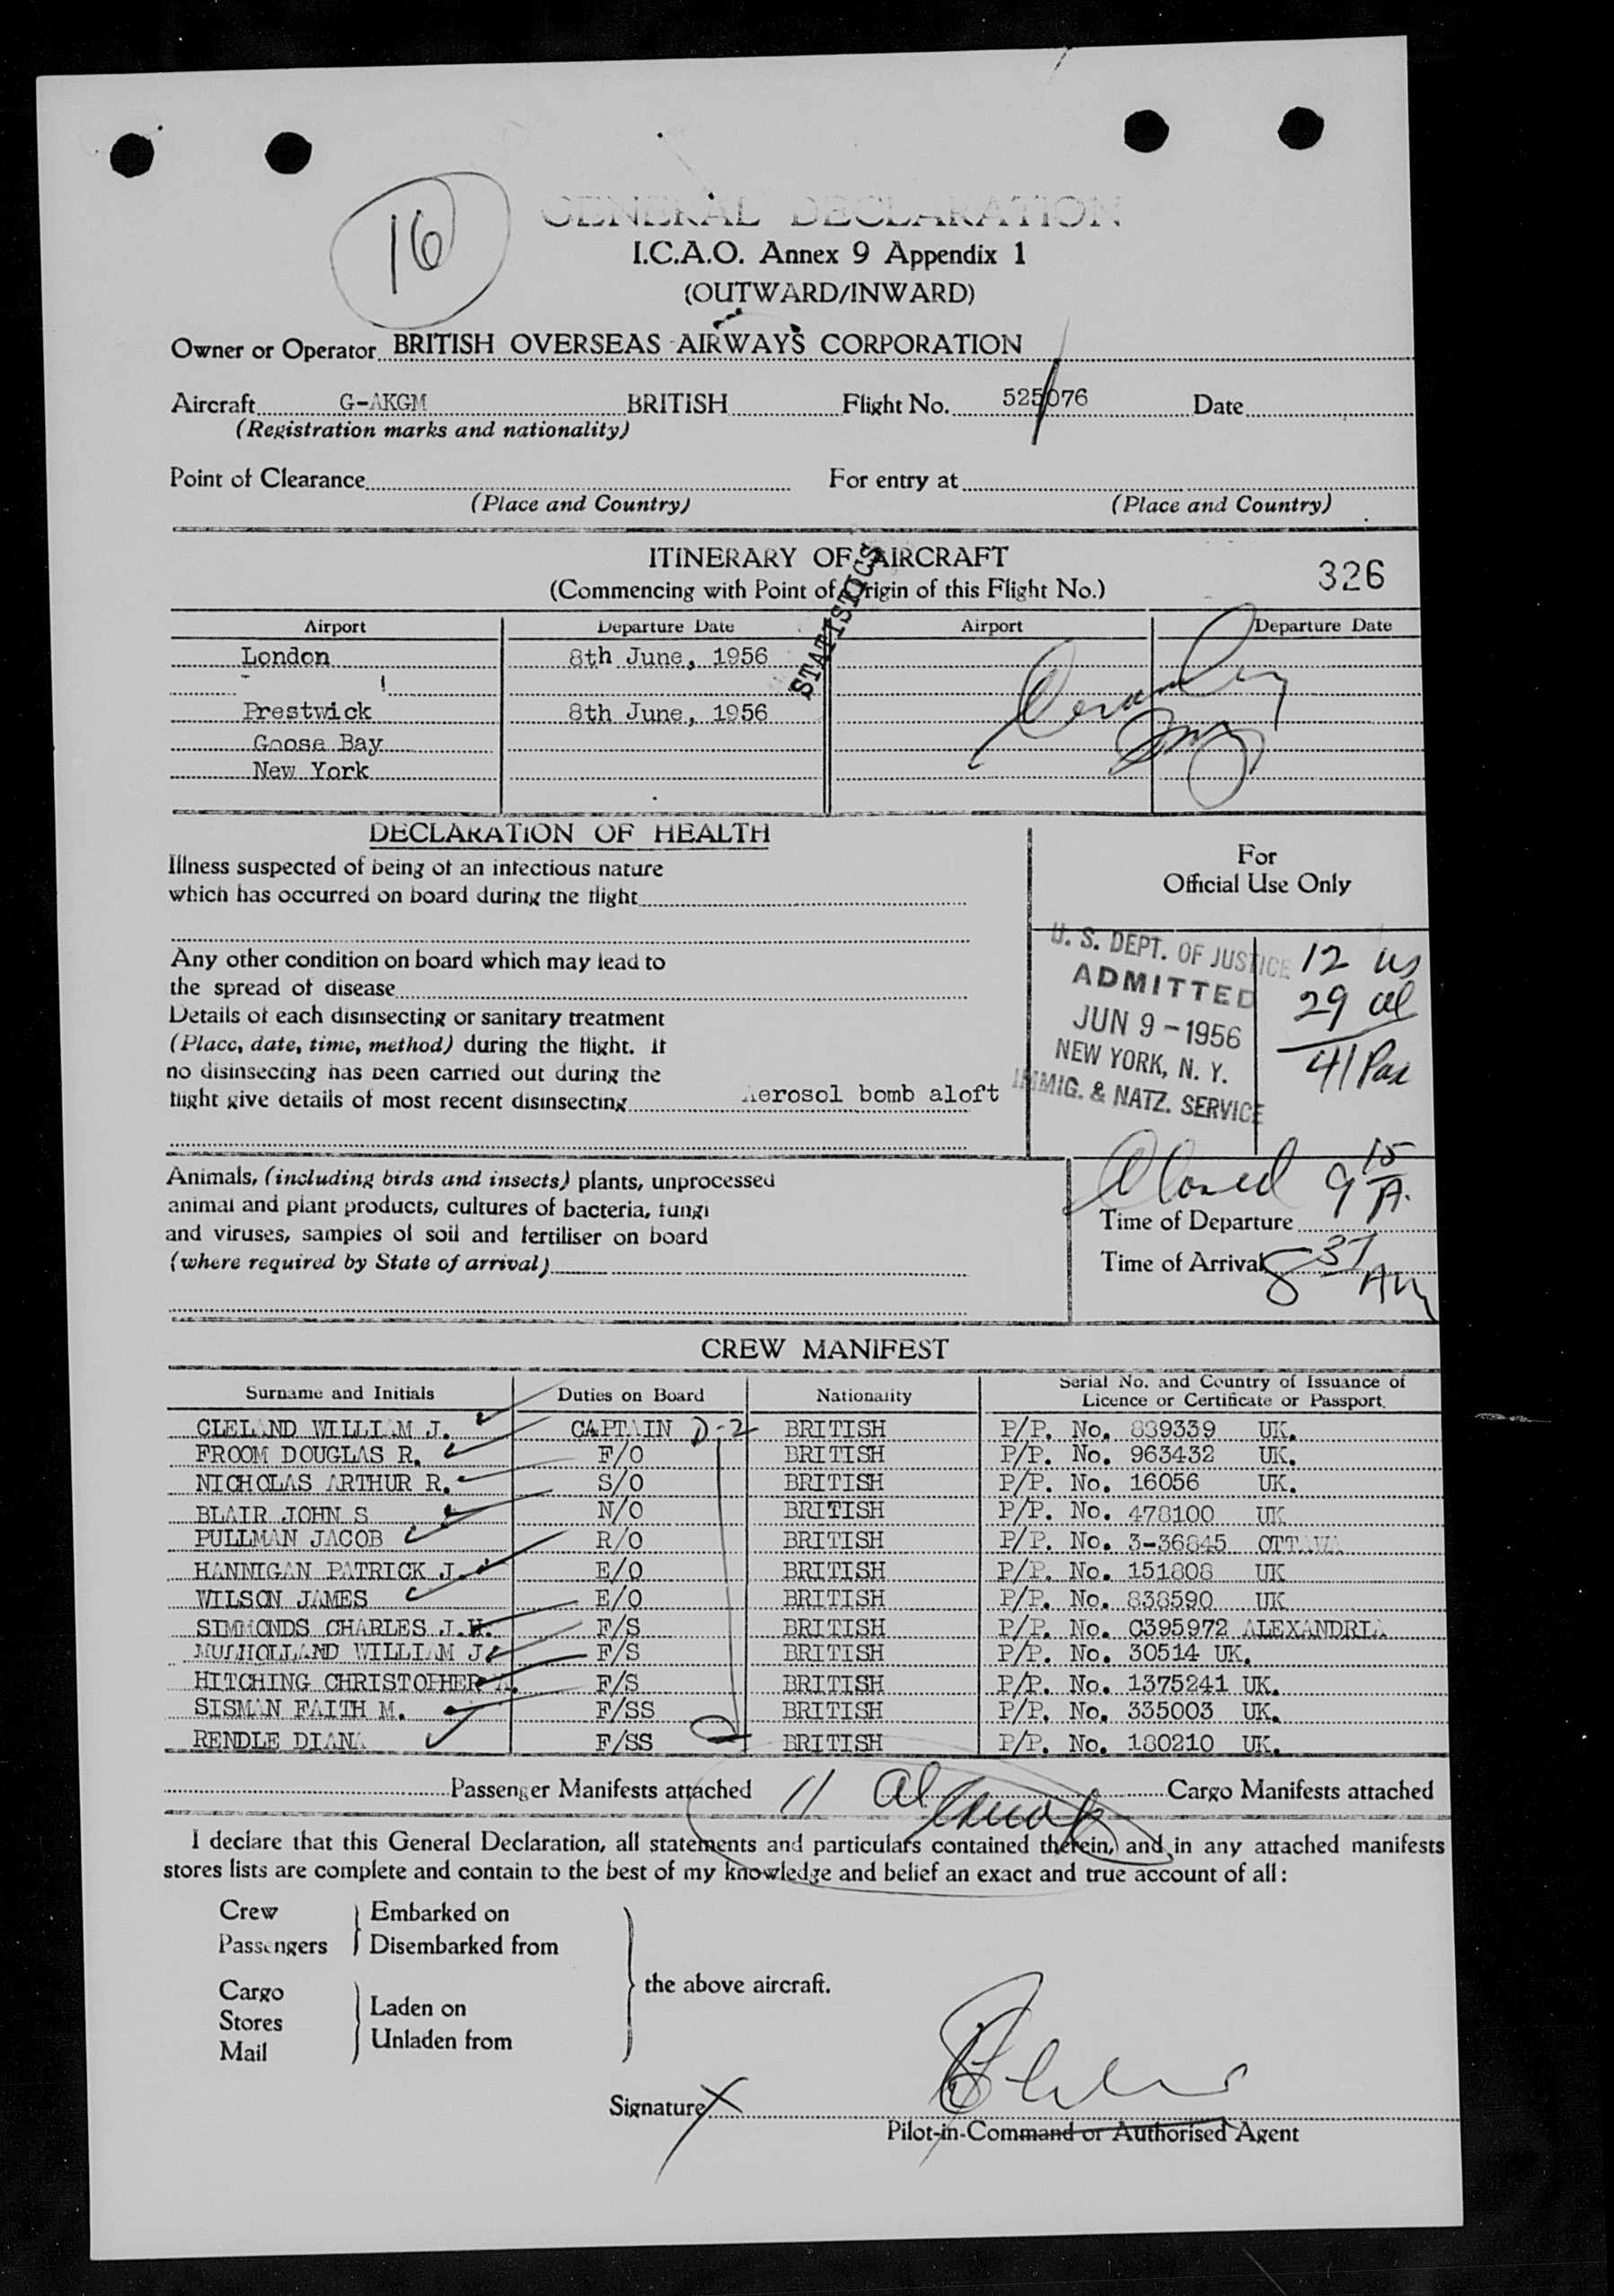 16
GENERAL DECLARATION
I.C.A.O. Annex 9 Appendix 1
(OUTWARD/INWARD)
Owner or Operator BRITISH OVERSEAS AIRWAYS CORPORATION
Aircraft G-AKGM BRITISH Flight No. 525/076 Date
(Registration marks and nationality)
Point of Clearance For entry at
(Place and Country) (Place and Country)
ITINERARY OF AIRCRAFT 326
(Commencing with Point of Origin of this Flight No.)
STATISTICS
Airport Departure Date Airport Departure Date
London 8th June, 1956
Prestwick 8th June, 1956
Goose Bay
New York
DECLARATION OF HEALTH
Illness suspected of being of an infectious nature
which has occurred on board during the flight
Any other condition on board which may lead to
the spread of disease
Details of each disinsecting or sanitary treatment
(Place, date, time, method) during the flight. If
no disinsecting has been carried out during the
flight give details of most recent disinsecting Aerosol bomb aloft
For
Official Use Only
U. S. DEPT. OF JUSTICE
ADMITTED
JUN 9 - 1956
NEW YORK, N. Y.
IMMIG. & NATZ. SERVICE
12 us
29 al
41 Pax
Animals, (including birds and insects) plants, unprocessed
animal and plant products, cultures of bacteria, fungi
and viruses, samples of soil and fertiliser on board
(where required by State of arrival)
Closed 9 15 A.
Time of Departure
Time of Arrival 8 37 AM
CREW MANIFEST
Surname and Initials Duties on Board Nationality Serial No. and Country of Issuance of Licence or Certificate or Passport.
CLELAND WILLIAM J. CAPTAIN D-2 BRITISH P/P. No. 889339 UK.
FROOM DOUGLAS R. F/O BRITISH P/P. No. 963432 UK.
NICHOLAS ARTHUR R. S/O BRITISH P/P. No. 16056 UK.
BLAIR JOHN S N/O BRITISH P/P. No. 478100 UK
PULLMAN JACOB R/O BRITISH P/P. No. 3-36845 OTTAWA
HANNIGAN PATRICK J. E/O BRITISH P/P. No. 151808 UK
WILSON JAMES E/O BRITISH P/P. No. 838590 UK
SIMMONDS CHARLES J.H. F/S BRITISH P/P. No. C395972 ALEXANDRIA
MULHOLLAND WILLIAM J. F/S BRITISH P/P. No. 30514 UK.
HITCHING CHRISTOPHER A. F/S BRITISH P/P. No. 1375241 UK.
SISMAN FAITH M. F/SS BRITISH P/P. No. 335003 UK.
RENDLE DIANA F/SS BRITISH P/P. No. 180210 UK.
Passenger Manifests attached 11 al Cargo Manifests attached
I declare that this General Declaration, all statements and particulars contained therein, and in any attached manifests
stores lists are complete and contain to the best of my knowledge and belief an exact and true account of all:
Crew Embarked on
Passengers Disembarked from
the above aircraft.
Cargo Laden on
Stores
Mail Unladen from
Signature X
Pilot-in-Command or Authorised Agent